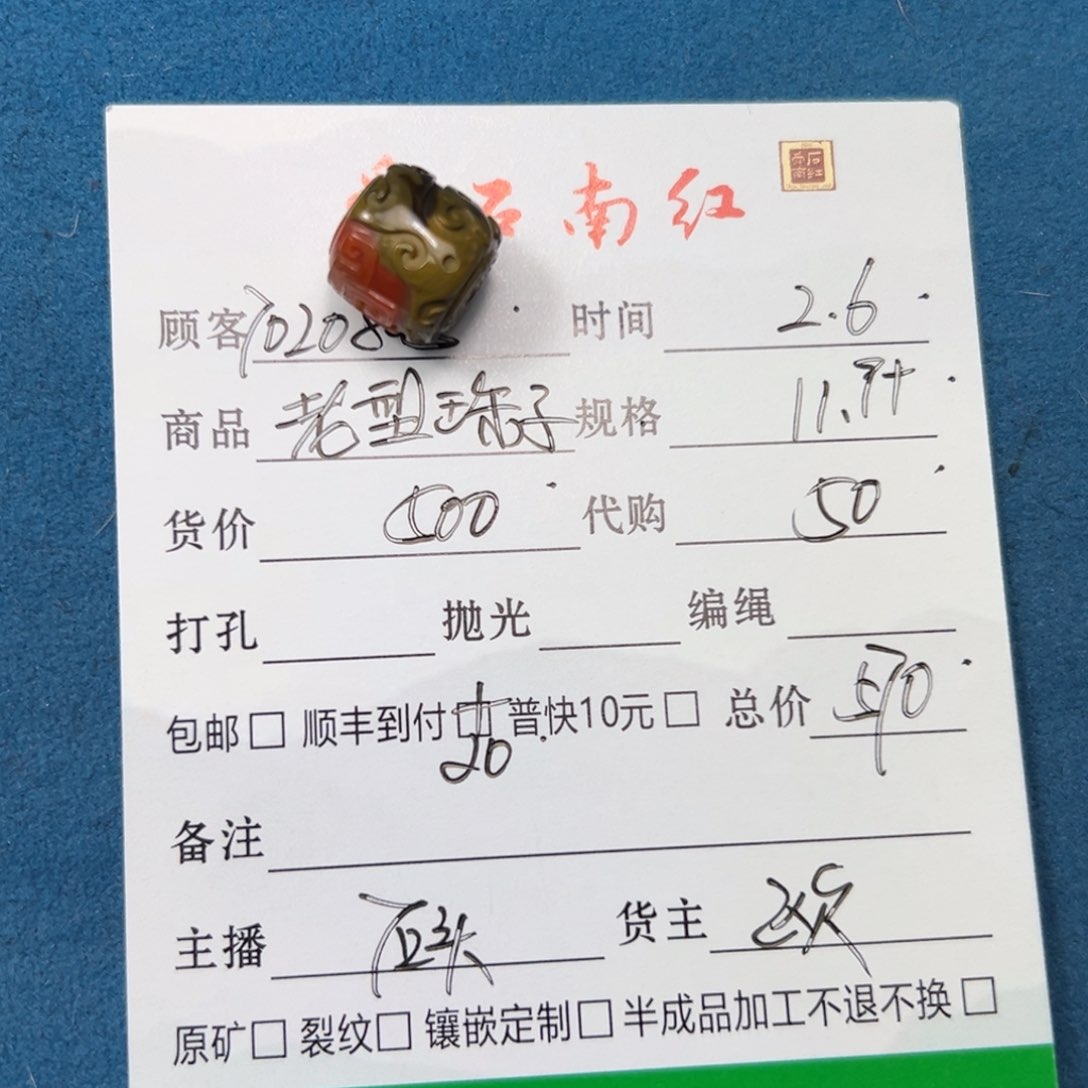 石南红
顾客 70208 时间 2.6
商品 老型珠子 规格 11.9
货价 500 代购 50
打孔 抛光 编绳
包邮□ 顺丰到付□ 普快10元□ 总价 570
20
备注
主播 石头 货主 欧
原矿□ 裂纹□ 镶嵌定制□ 半成品加工不退不换□